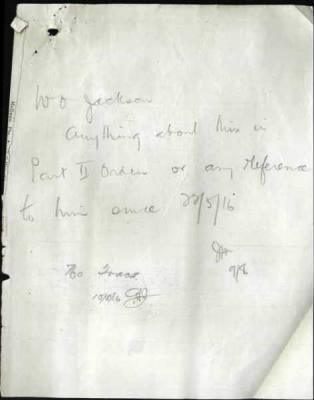 W O Jackson
Anything about this in
Part II Orders or any reference
to him since 22/5/16
9/8
No Trace
10/8/16